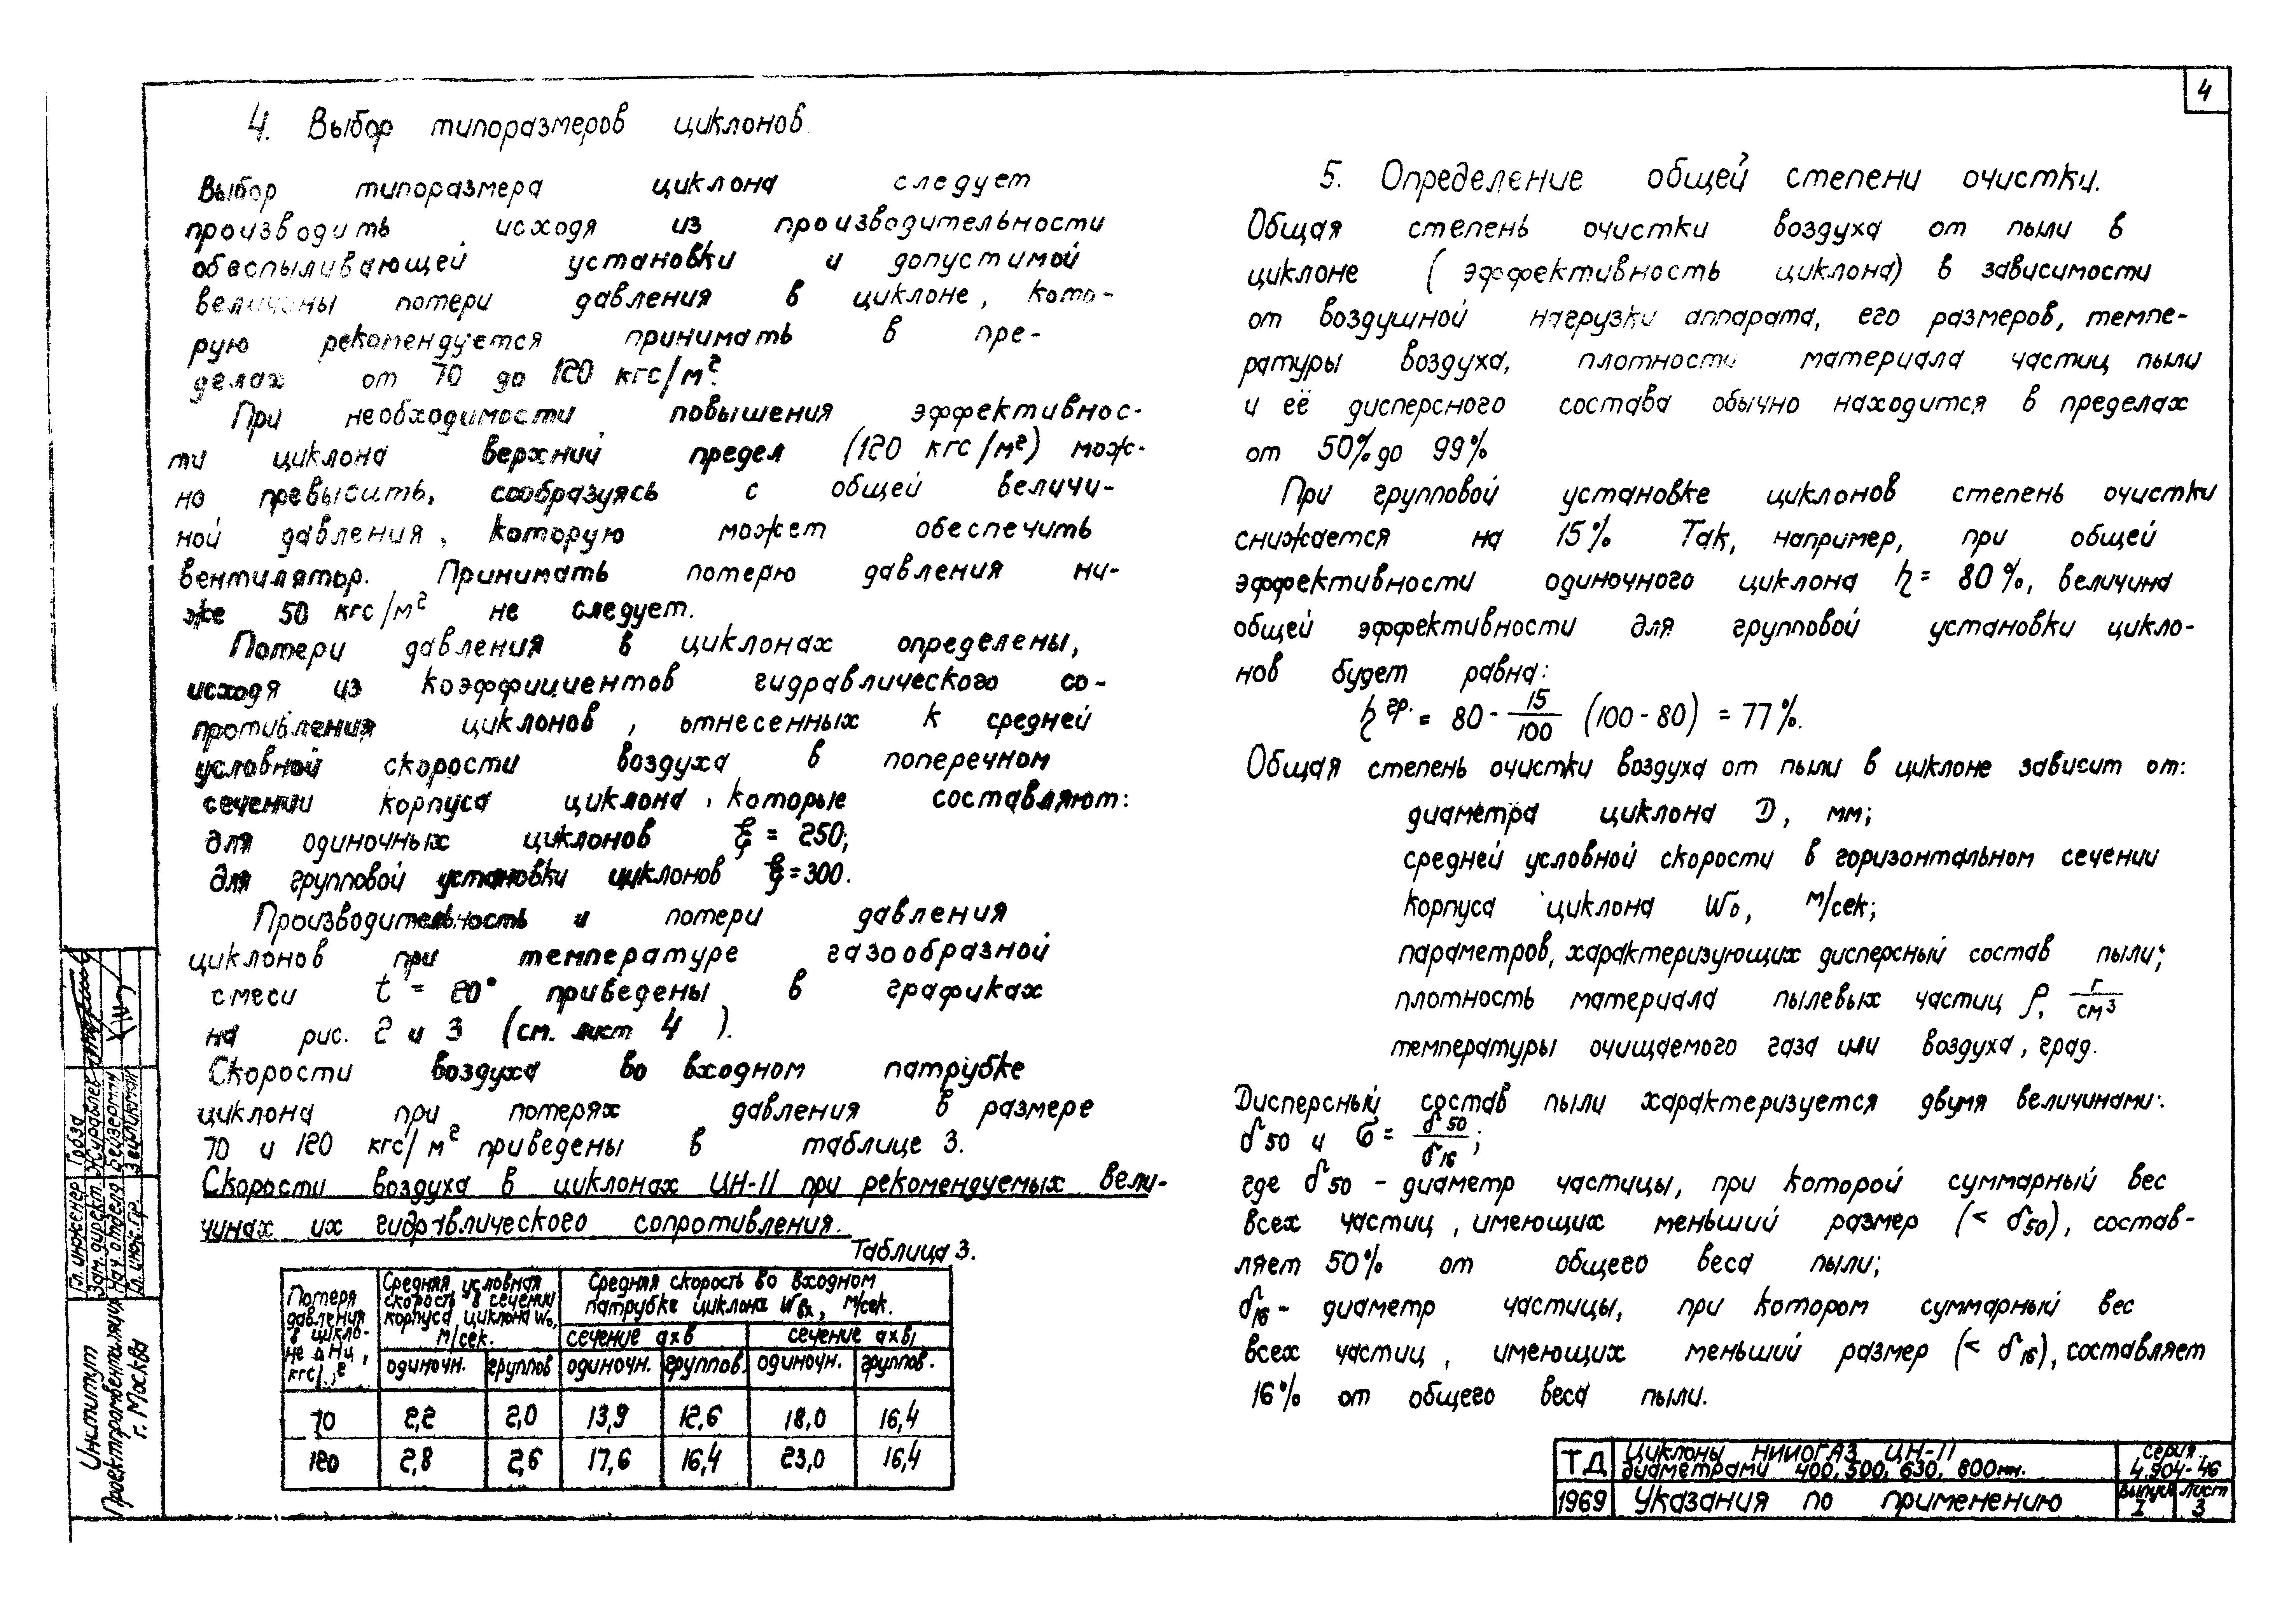 4
4. Выбор типоразмеров циклонов.
Выбор типоразмера циклона следует
производить исходя из производительности
обеспыливающей установки и допустимой
величины потери давления в циклоне, кото-
рую рекомендуется принимать в пре-
делах от 70 до 120 кгс/м².
При необходимости повышения эффективнос-
ти циклона верхний предел (120 кгс/м²) мож-
но превысить, сообразуясь с общей величи-
ной давления, которую может обеспечить
вентилятор. Принимать потерю давления ни-
же 50 кгс/м² не следует.
Потери давления в циклонах определены,
исходя из коэффициентов гидравлического со-
противления циклонов, отнесенных к средней
условной скорости воздуха в поперечном
сечении корпуса циклона, которые составляют:
для одиночных циклонов ξ = 250;
для групповой установки циклонов ξ = 300.
Производительность и потери давления
циклонов при температуре газообразной
смеси t = 20° приведены в графиках
на рис. 2 и 3 (см. лист 4 ).
Скорости воздуха во входном патрубке
циклона при потерях давления в размере
70 и 120 кгс/м² приведены в таблице 3.
Скорости воздуха в циклонах ЦН-11 при рекомендуемых вели-
чинах их гидравлического сопротивления.
Таблица 3.
Потеря давления в цикло- не ΔНц, кгс/ ²
Средняя условная скорость в сечении корпуса циклона Wо, м/сек.
Средняя скорость во входном патрубке циклона Wвх, м/сек.
сечение ахв сечение ахв₁
одиночн. группов одиночн. группов. одиночн. группов.
70 2,2 2,0 13,9 12,6 18,0 16,4
120 2,8 2,6 17,6 16,4 23,0 16,4
5. Определение общей степени очистки.
Общая степень очистки воздуха от пыли в
циклоне (эффективность циклона) в зависимости
от воздушной нагрузки аппарата, его размеров, темпе-
ратуры воздуха, плотности материала частиц пыли
и её дисперсного состава обычно находится в пределах
от 50% до 99%
При групповой установке циклонов степень очистки
снижается на 15% Так, например, при общей
эффективности одиночного циклона η = 80%, величина
общей эффективности для групповой установки цикло-
нов будет равна:
η гр. = 80 - 15/100 (100 - 80) = 77%.
Общая степень очистки воздуха от пыли в циклоне зависит от:
диаметра циклона D, мм;
средней условной скорости в горизонтальном сечении
корпуса циклона Wо, м/сек;
параметров, характеризующих дисперсный состав пыли;
плотность материала пылевых частиц ρ, г/см³
температуры очищаемого газа или воздуха, град.
Дисперсный состав пыли характеризуется двумя величинами:
δ50 и σ = δ50/δ16;
где δ50 - диаметр частицы, при которой суммарный вес
всех частиц, имеющих меньший размер (< δ50), состав-
ляет 50% от общего веса пыли;
δ16 - диаметр частицы, при котором суммарный вес
всех частиц, имеющих меньший размер (< δ16), составляет
16% от общего веса пыли.
Гл. инженер Говза
Зам. директ. Журавлев
Нач. отдела Бейзерман
Гл. инж. пр.
Институт
Проектпромвентиляция
г. Москва
ТД Циклоны НИИОГАЗ ЦН-11
диаметрами 400, 500, 630, 800мм.
серия
4.904-46
1969 Указания по применению
выпуск I
лист 3